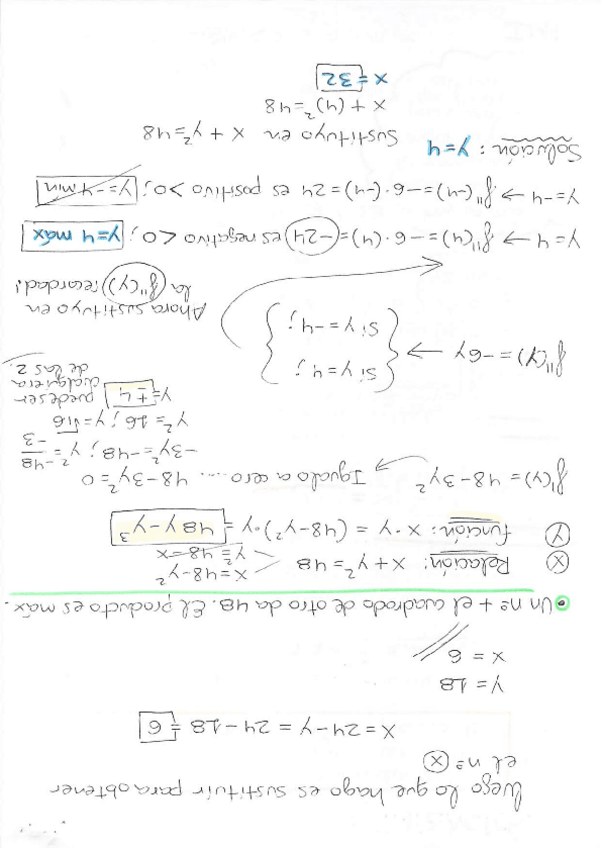 Luego lo que hago es sustituir para obtener
el nº X
x = 24-y = 24-18 = 6
y = 18
x = 6
Un nº + el cuadrado de otro da 48. El producto es máx.
X Relación: x + y² = 48
x = 48-y²
y² = 48-x
Y función: x · y = (48-y²)·y = 48y-y³
f'(y) = 48-3y²
Igualo a cero .... 48-3y² = 0
-3y² = -48; y² = -48/-3
y² = 16; y = √16
y = ±4 puede ser
cualquiera
de las 2.
f''(y) = -6y
Si y = 4;
Si y = -4;
Ahora sustituyo en
la f''(y) recordad!
y = 4 → f''(4) = -6·(4) = -24 es negativo < 0; y = 4 máx
y = -4 → f''(-4) = -6·(-4) = 24 es positivo > 0; y = -4 min
Solución: y = 4
Sustituyo en x + y² = 48
x + (4)² = 48
x = 32